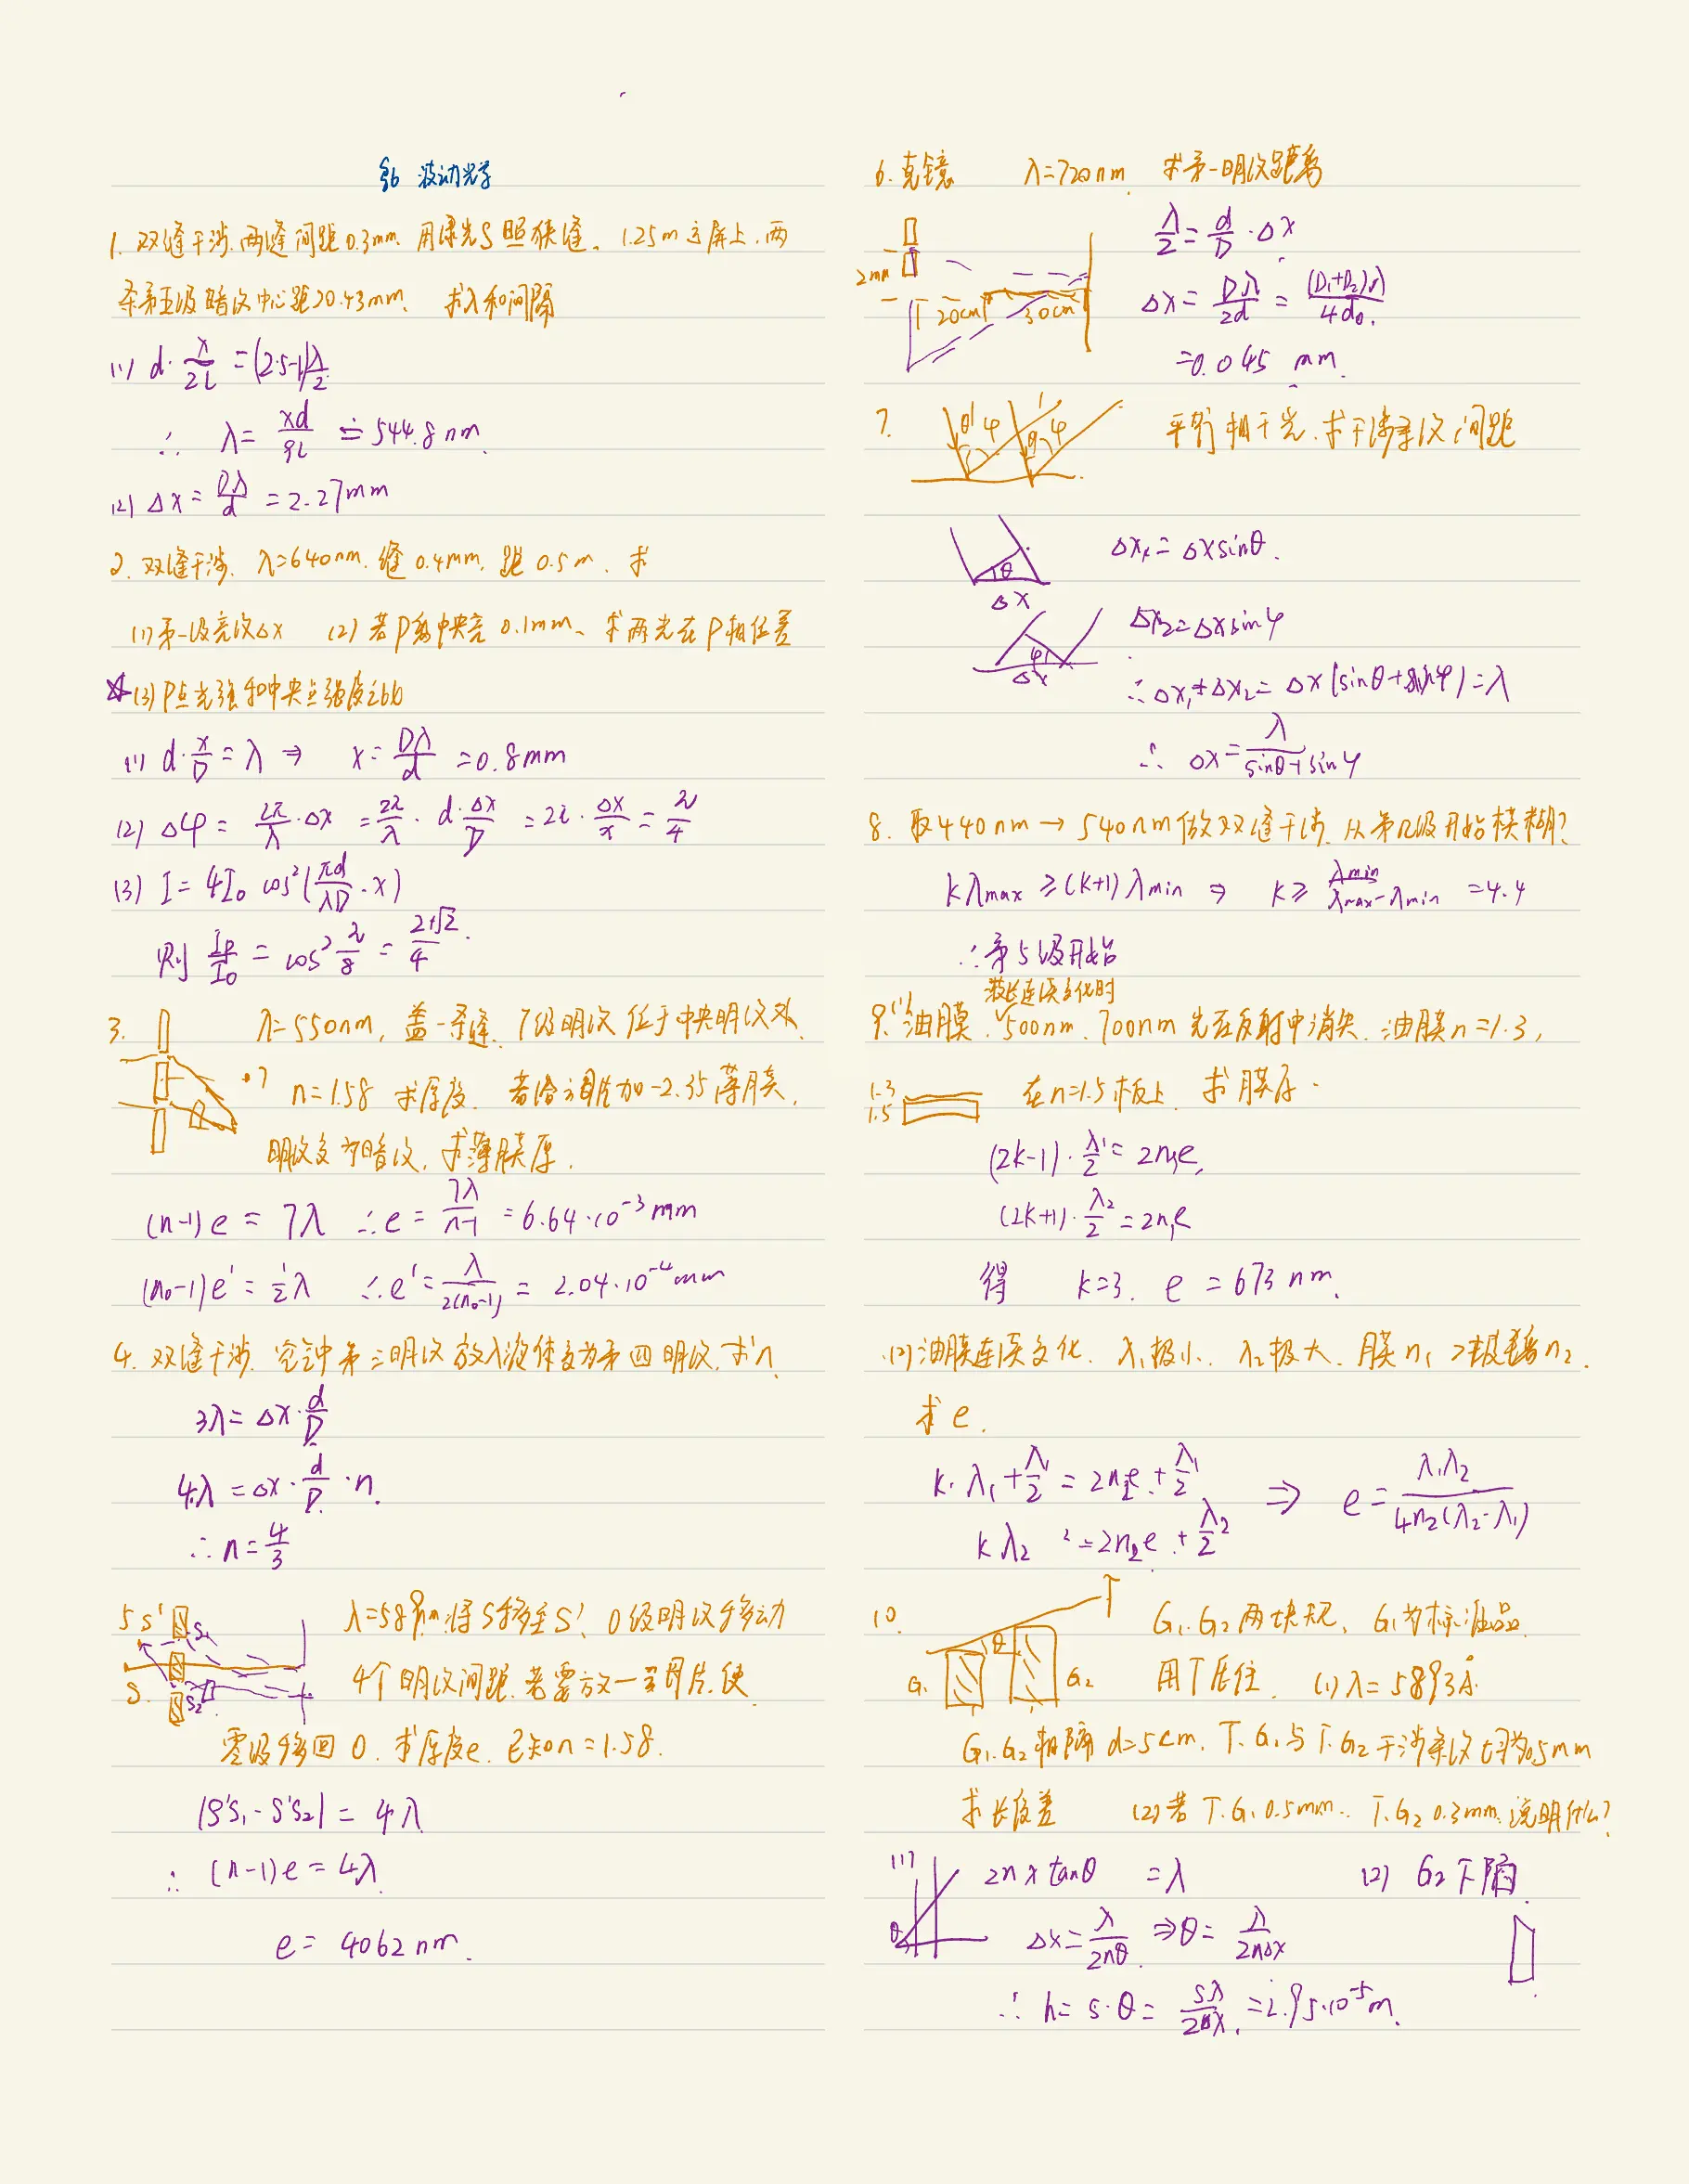 §6 波动光学
1. 双缝干涉. 两缝间距0.3mm. 用绿光S照狭缝. 1.25m远屏上. 两
条第五级暗纹中心距20.43mm. 求λ和间隔
(1) d·x/2L = (2·5-1)λ/2
∴ λ = xd/9L ≐ 544.8 nm.
(2) Δx = Dλ/d = 2.27mm
2. 双缝干涉. λ=640nm. 缝0.4mm. 距0.5m. 求
(1)第一级亮纹Δx (2)若P离中央亮0.1mm、求两光在P相位差
(3) P点光强和中央点强度之比
(1) d·x/D = λ ⇒ x = Dλ/d = 0.8mm
(2) Δφ = 2π/λ·Δx = 2π/λ·d·Δx/D = 2π·Δx/x = π/4
(3) I = 4I₀ cos²(πd/λD·x)
则 Ip/I₀ = cos² π/8 = (2+√2)/4.
3. λ=550nm, 盖一条缝. 7级明纹位于中央明纹处.
n=1.58 求厚度. 若给云母片加一2.35薄膜.
明纹变为暗纹. 求薄膜厚.
(n-1)e = 7λ ∴e = 7λ/(n-1) = 6.64·10⁻³mm
(n₀-1)e' = ½λ ∴e' = λ/2(n₀-1) = 2.04·10⁻⁴mm
4. 双缝干涉. 空气中第三明纹放入液体变为第四明纹. 求n
3λ = Δx·d/D
4λ = Δx·d/D·n.
∴n = 4/3
5 S' S₁ S S₂ λ=589nm. 将S移至S'. 0级明纹移动
4个明纹间距. 若要放一云母片. 使
零级移回0. 求厚度e. 已知n=1.58.
|S'S₁-S'S₂| = 4λ
∴ (n-1)e = 4λ
e = 4062nm.
6. 克镜 λ=720nm. 求第一明纹距离
2mm 20cm 30cm
λ/2 = d/D·Δx
Δx = Dλ/2d = (D₁+D₂)λ/4d₀.
=0.045 mm.
7. θ φ θ φ 平行相干光. 求干涉条纹间距
θ Δx Δx₁ = Δxsinθ.
φ Δx Δx₂=Δxsinφ
∴Δx₁+Δx₂ = Δx(sinθ+sinφ)=λ
∴ Δx = λ/(sinθ+sinφ)
8. 取440nm → 540nm做双缝干涉. 从第几级开始模糊?
kλmax ≥(k+1)λmin ⇒ k≥ λmin/(λmax-λmin) =4.4
∴第5级开始
波长连续变化时
9.(1)油膜. 500nm. 700nm光在反射中消失. 油膜n=1.3,
1.3 1.5 在n=1.5板上. 求膜厚.
(2k-1)·λ₁/2 = 2n₁e,
(2k+1)·λ₂/2 = 2n₁e
得 k=3. e = 673nm.
(2)油膜连续变化. λ₁极小. λ₂极大. 膜n₁ > n₂.
求e.
k·λ₁+λ₁/2 = 2n₂e+λ₁/2 ⇒ e = λ₁λ₂/4n₂(λ₂-λ₁)
kλ₂ =2n₂e+λ₂/2
10. T θ G₁ G₂ G₁. G₂两块规、G₁为标准品.
用T压住. (1)λ=5893Å.
G₁. G₂相隔d=5cm. T. G₁与T. G₂干涉条纹均为0.5mm
求长度差 (2)若T. G₁ 0.5mm.. T. G₂ 0.3mm. 说明什么?
(1) θ 2nxtanθ =λ (2) G₂下陷.
Δx = λ/2nθ ⇒θ = λ/2nΔx
∴ h = s·θ = sλ/2Δx. =2.95·10⁻⁵m.